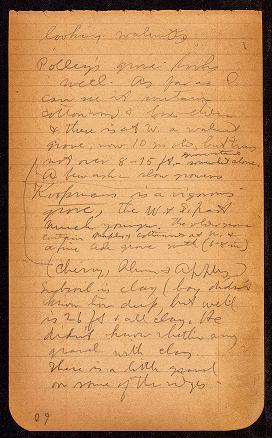 looking walnuts
Polleys grove looks
well. As far as I
can see it contains
cottonwood & box elder
& there is at W. a walnut
grove, now 10 yrs old, but trees
not over 8-15 ft. - some stand close.
A few ash - slow growers
Koopmans is a vigorous
grove, the W & S part
much younger. The older grove
contains maples, cottonwood at N. &
a fine Ash grove with (6-8 in)
(Cherry, Plum & Apples)
Subsoil is clay (boy didn't
know how deep, but well
is 26 ft & all clay. He
didn't know whether any
gravel with clay
There is a little gravel
on some of the ridges -
09